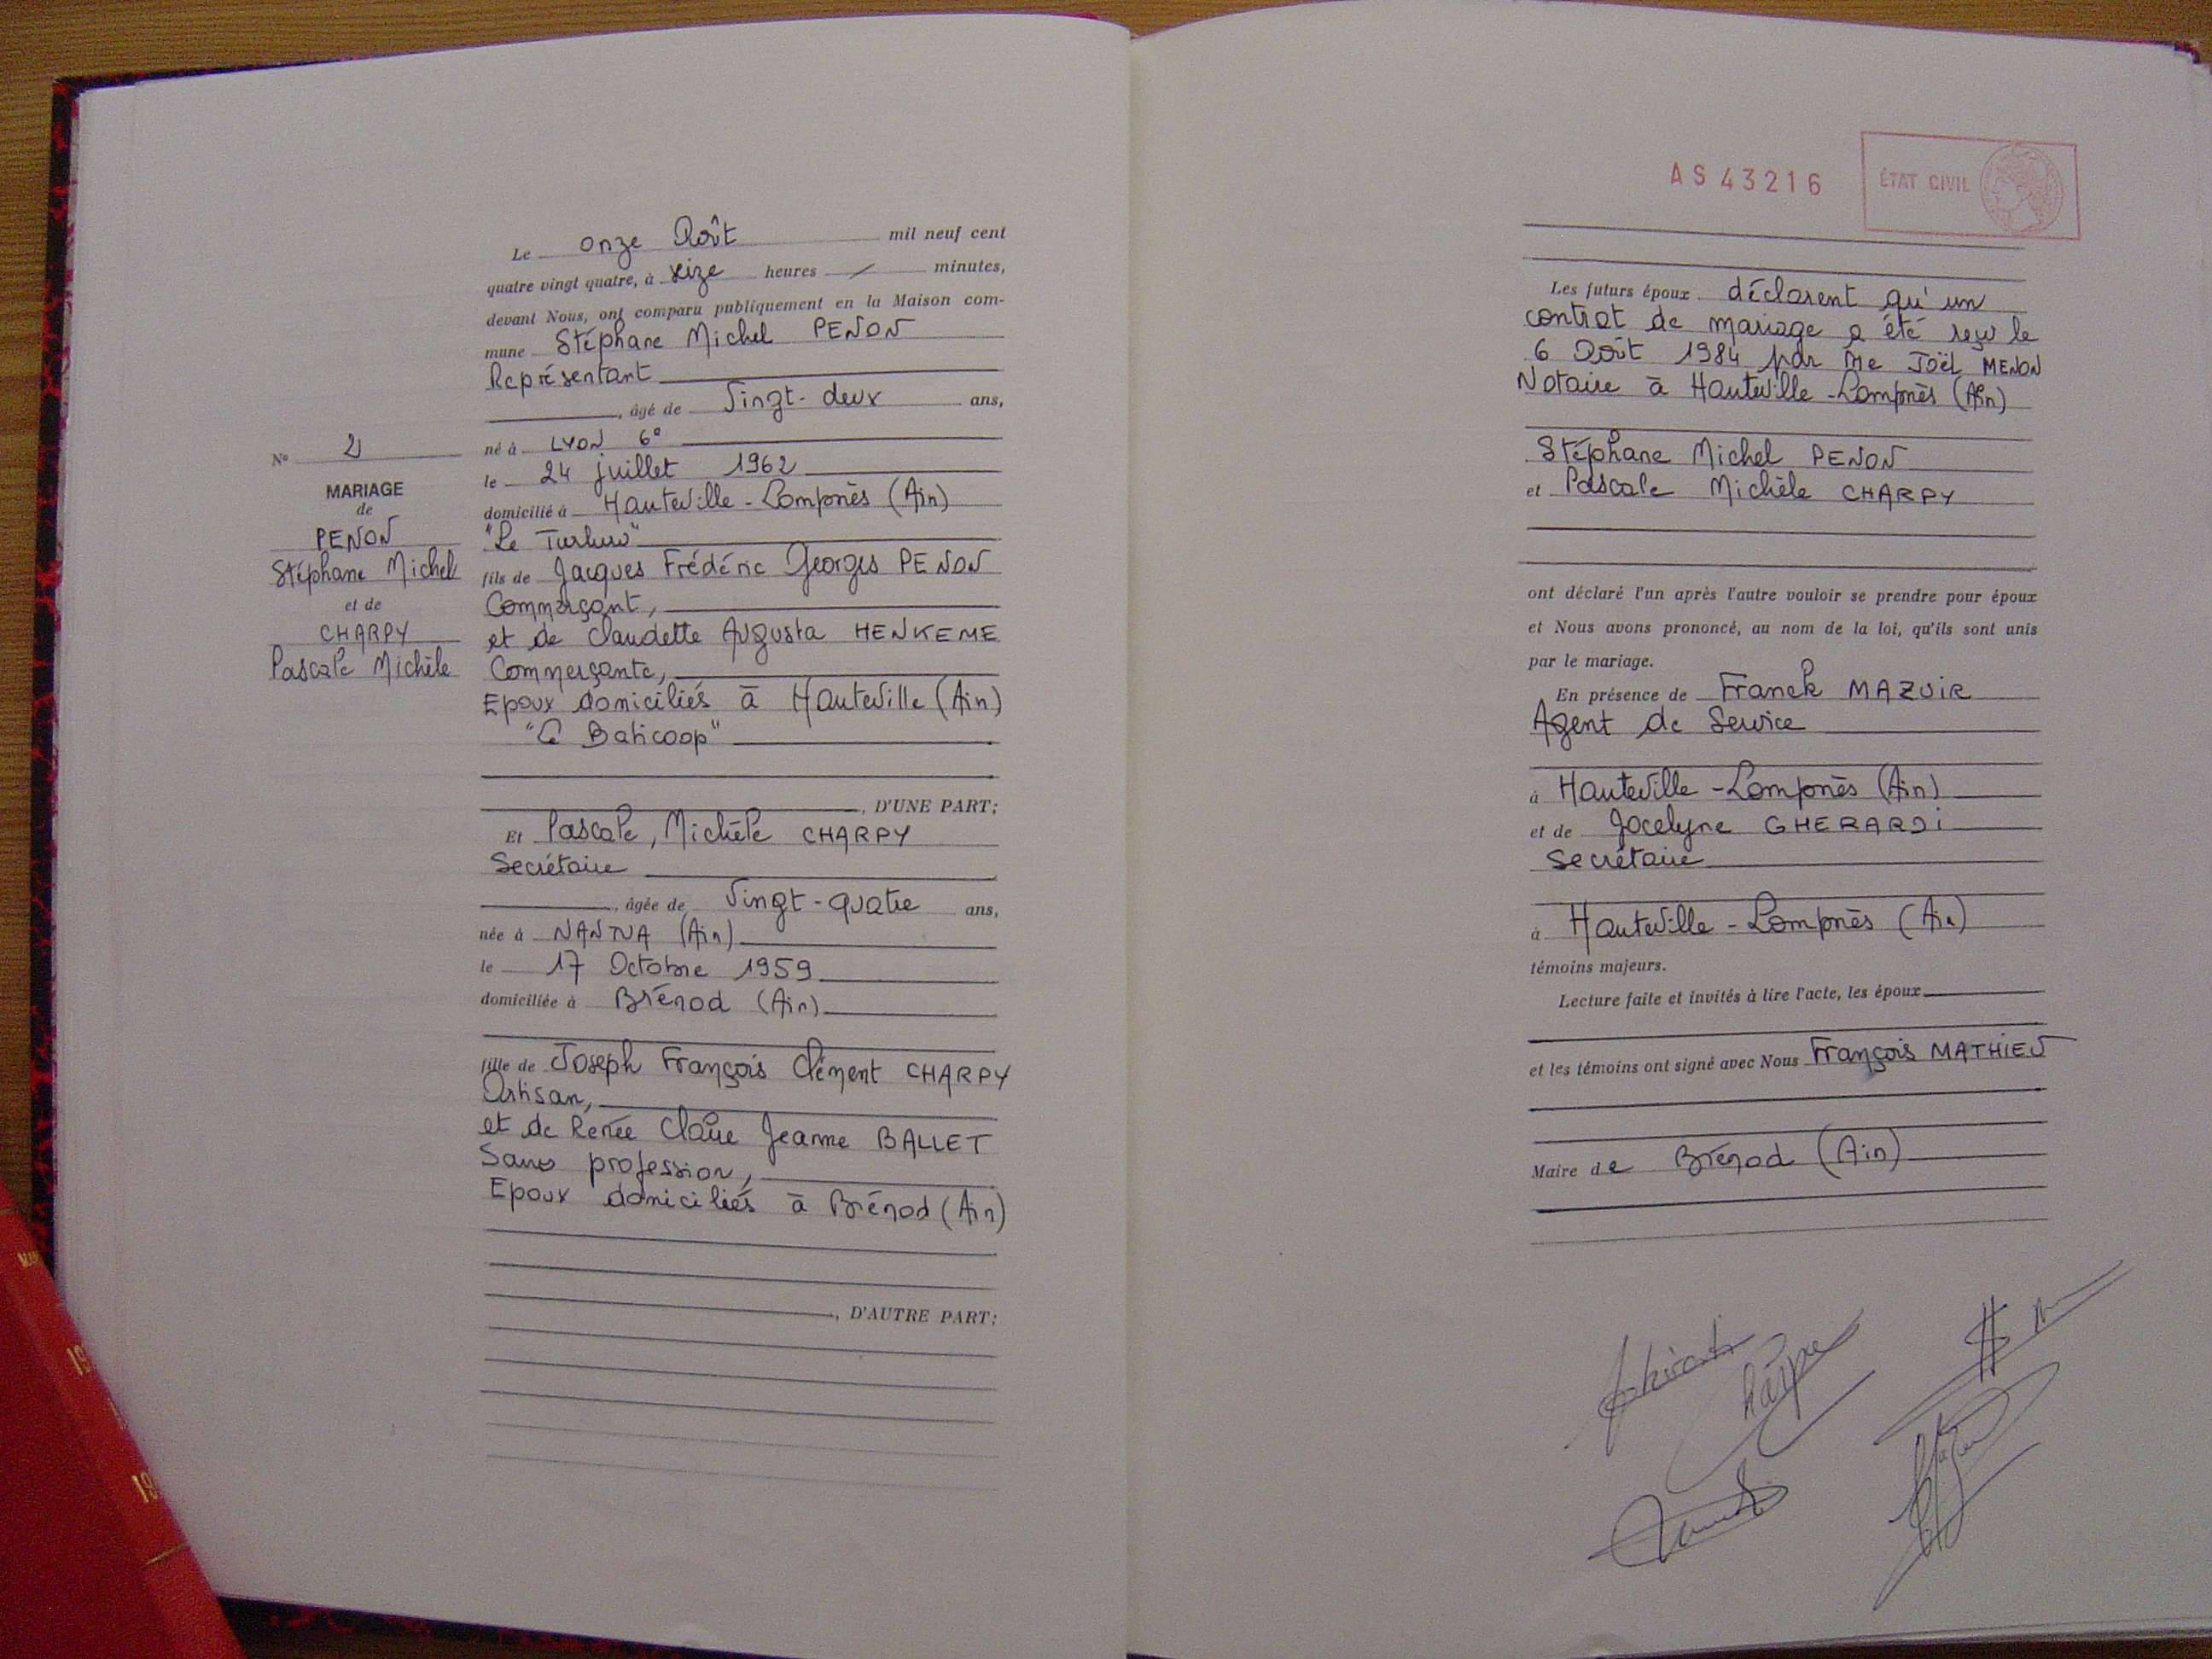 N° 2
MARIAGE
de
PENON
Stéphane Michel
et de
CHARPY
Pascale Michèle
Le onze Août mil neuf cent
quatre vingt quatre, à seize heures / minutes,
devant Nous, ont comparu publiquement en la Maison com-
mune Stéphane Michel PENON
Représentant
, âgé de Vingt-deux ans,
né à LYON 6°
le 24 juillet 1962
domicilié à Hauteville-Lompnès (Ain)
"Le Turluru"
fils de Jacques Frédéric Georges PENON
Commerçant,
et de Claudette Augusta HENKEME
Commerçante,
Epoux domiciliés à Hauteville (Ain)
Baticoop"
, D'UNE PART;
Et Pascale, Michèle CHARPY
Secrétaire
, âgée de Vingt-quatre ans,
née à NANTUA (Ain)
le 17 Octobre 1959
domiciliée à Brénod (Ain)
fille de Joseph François Clément CHARPY
Artisan,
et de Renée Claire Jeanne BALLET
Sans profession,
Epoux domiciliés à Brénod (Ain)
, D'AUTRE PART:
AS 43216
ÉTAT CIVIL
Les futurs époux déclarent qu'un
contrat de mariage a été reçu le
6 Août 1984 par Me Joël MENON
Notaire à Hauteville-Lompnès (Ain)
Stéphane Michel PENON
et Pascale Michèle CHARPY
ont déclaré l'un après l'autre vouloir se prendre pour époux
et Nous avons prononcé, au nom de la loi, qu'ils sont unis
par le mariage.
En présence de Franck MAZUIR
Agent de Service
à Hauteville-Lompnès (Ain)
et de Jocelyne GHERARDI
Secrétaire
à Hauteville-Lompnès (Ain)
témoins majeurs.
Lecture faite et invités à lire l'acte, les époux
et les témoins ont signé avec Nous François MATHIEU
Maire de Brénod (Ain)